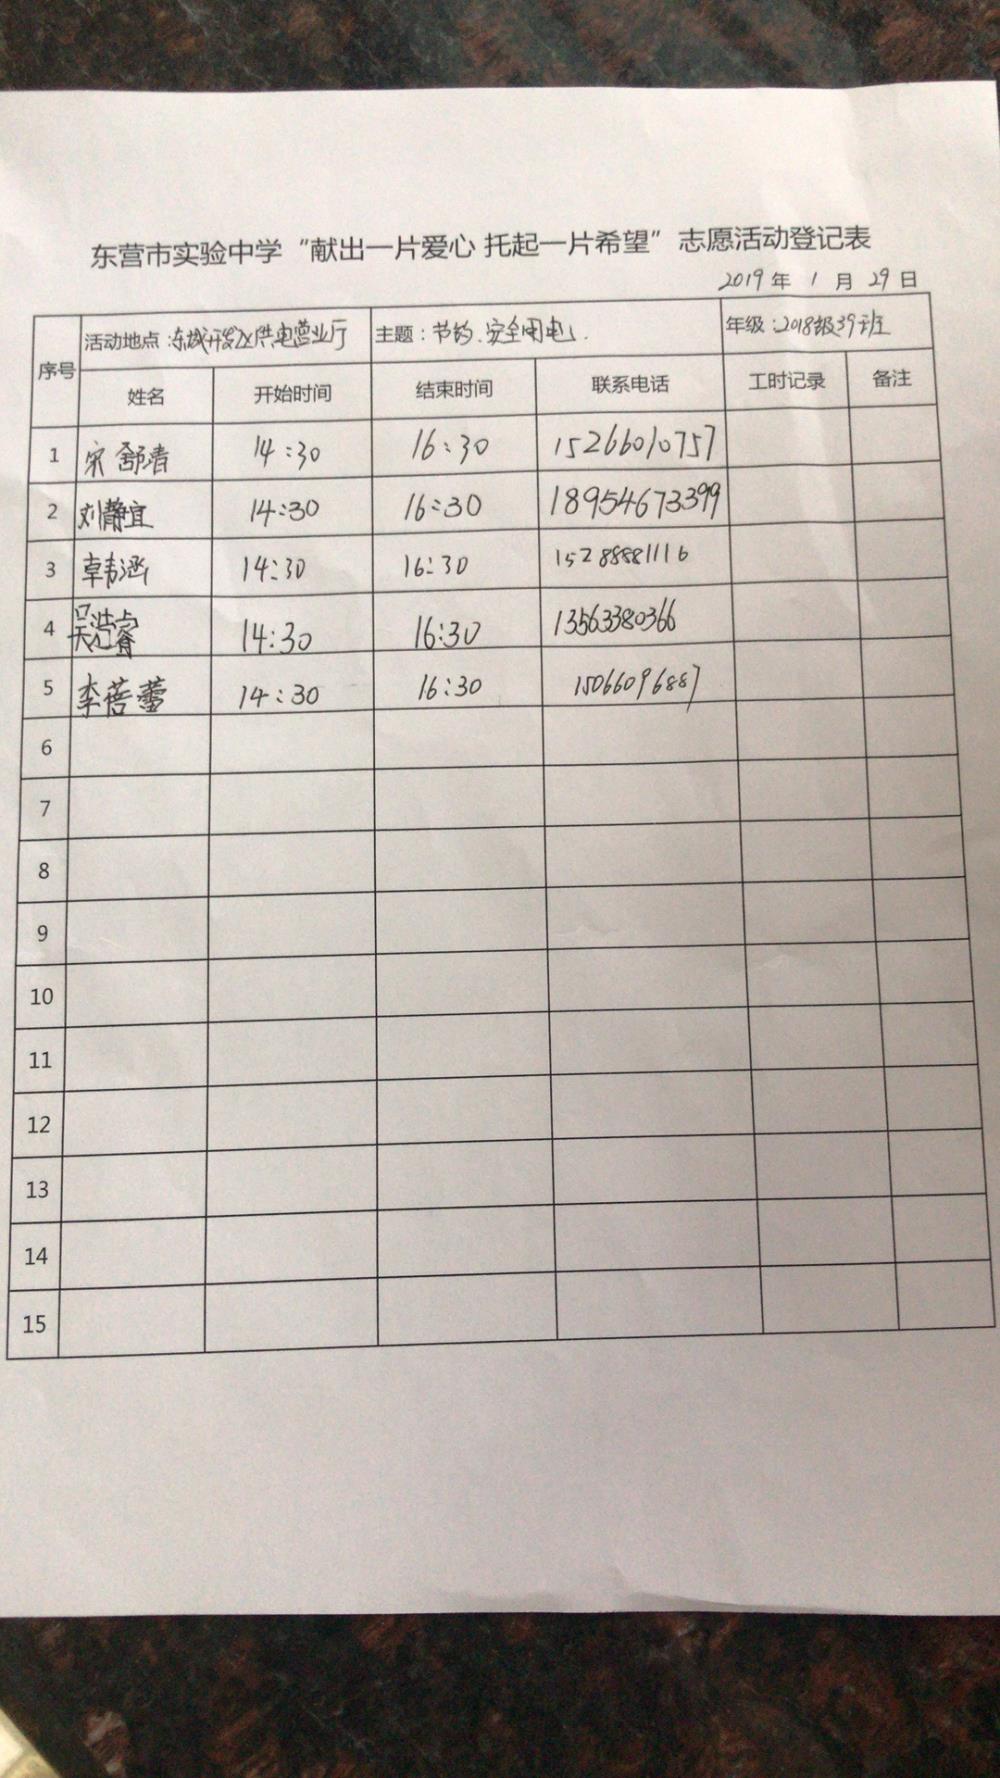 东营市实验中学“献出一片爱心 托起一片希望”志愿活动登记表
2019 年 1 月 29 日
序号 活动地点：东城开发区供电营业厅 主题：节约、安全用电. 年级：2018级39班
姓名 开始时间 结束时间 联系电话 工时记录 备注
1 宋舒清 14:30 16:30 15266010757
2 刘静宜 14:30 16:30 18954673399
3 韩涵 14:30 16:30 15288881116
4 吴浩睿 14:30 16:30 13563380366
5 李蓓蕾 14:30 16:30 15066096887
6
7
8
9
10
11
12
13
14
15